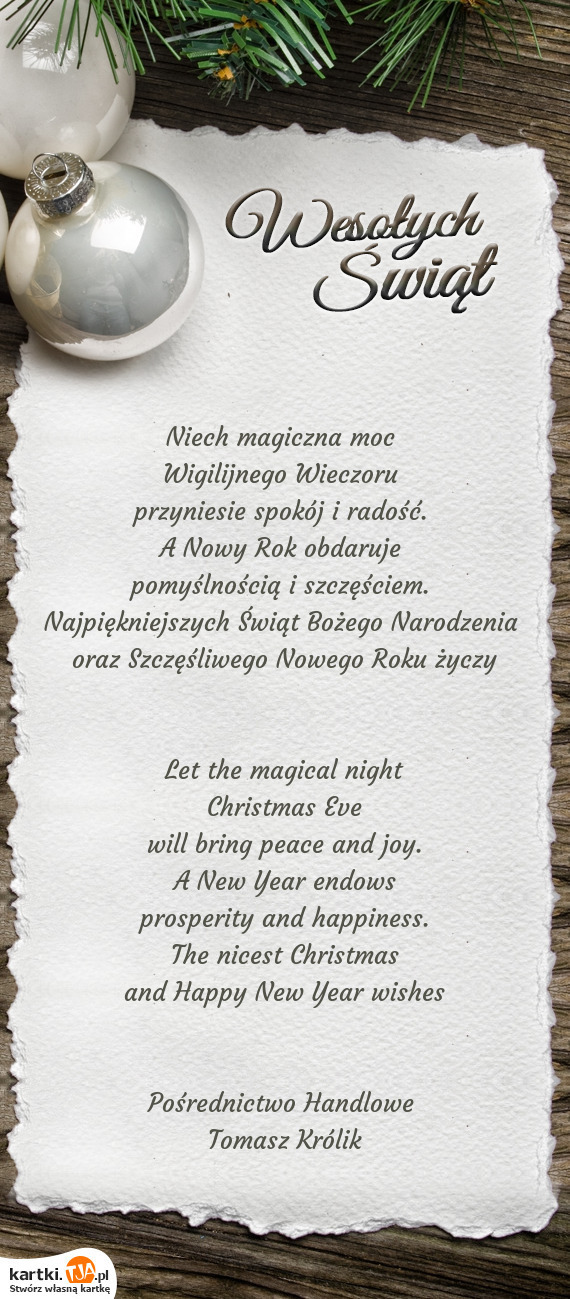 Wesołych
Świąt
Niech magiczna moc
Wigilijnego Wieczoru
przyniesie spokój i radość.
A Nowy Rok obdaruje
pomyślnością i szczęściem.
Najpiękniejszych Świąt Bożego Narodzenia
oraz Szczęśliwego Nowego Roku życzy
Let the magical night
Christmas Eve
will bring peace and joy.
A New Year endows
prosperity and happiness.
The nicest Christmas
and Happy New Year wishes
Pośrednictwo Handlowe
Tomasz Królik
kartki.TJA.pl
Stwórz własną kartkę